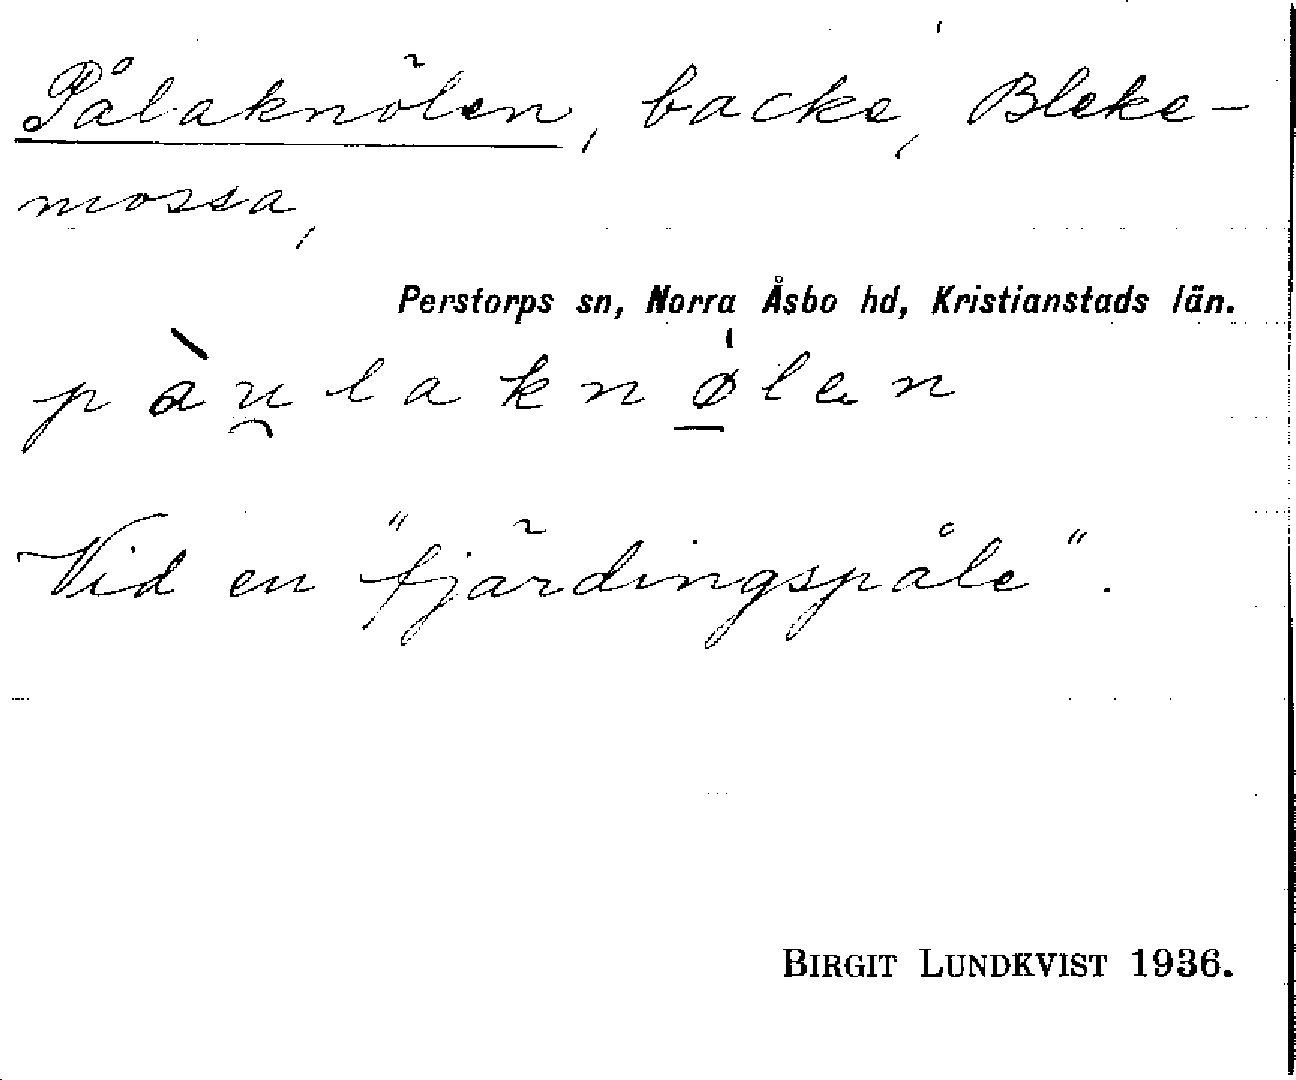 Pålaknölen, backe, Bleke-
mossa,
Perstorps sn, Norra Åsbo hd, Kristianstads län.
pàu̯laknø̲̍len
Vid en "fjärdingspåle".
BIRGIT LUNDKVIST 1936.